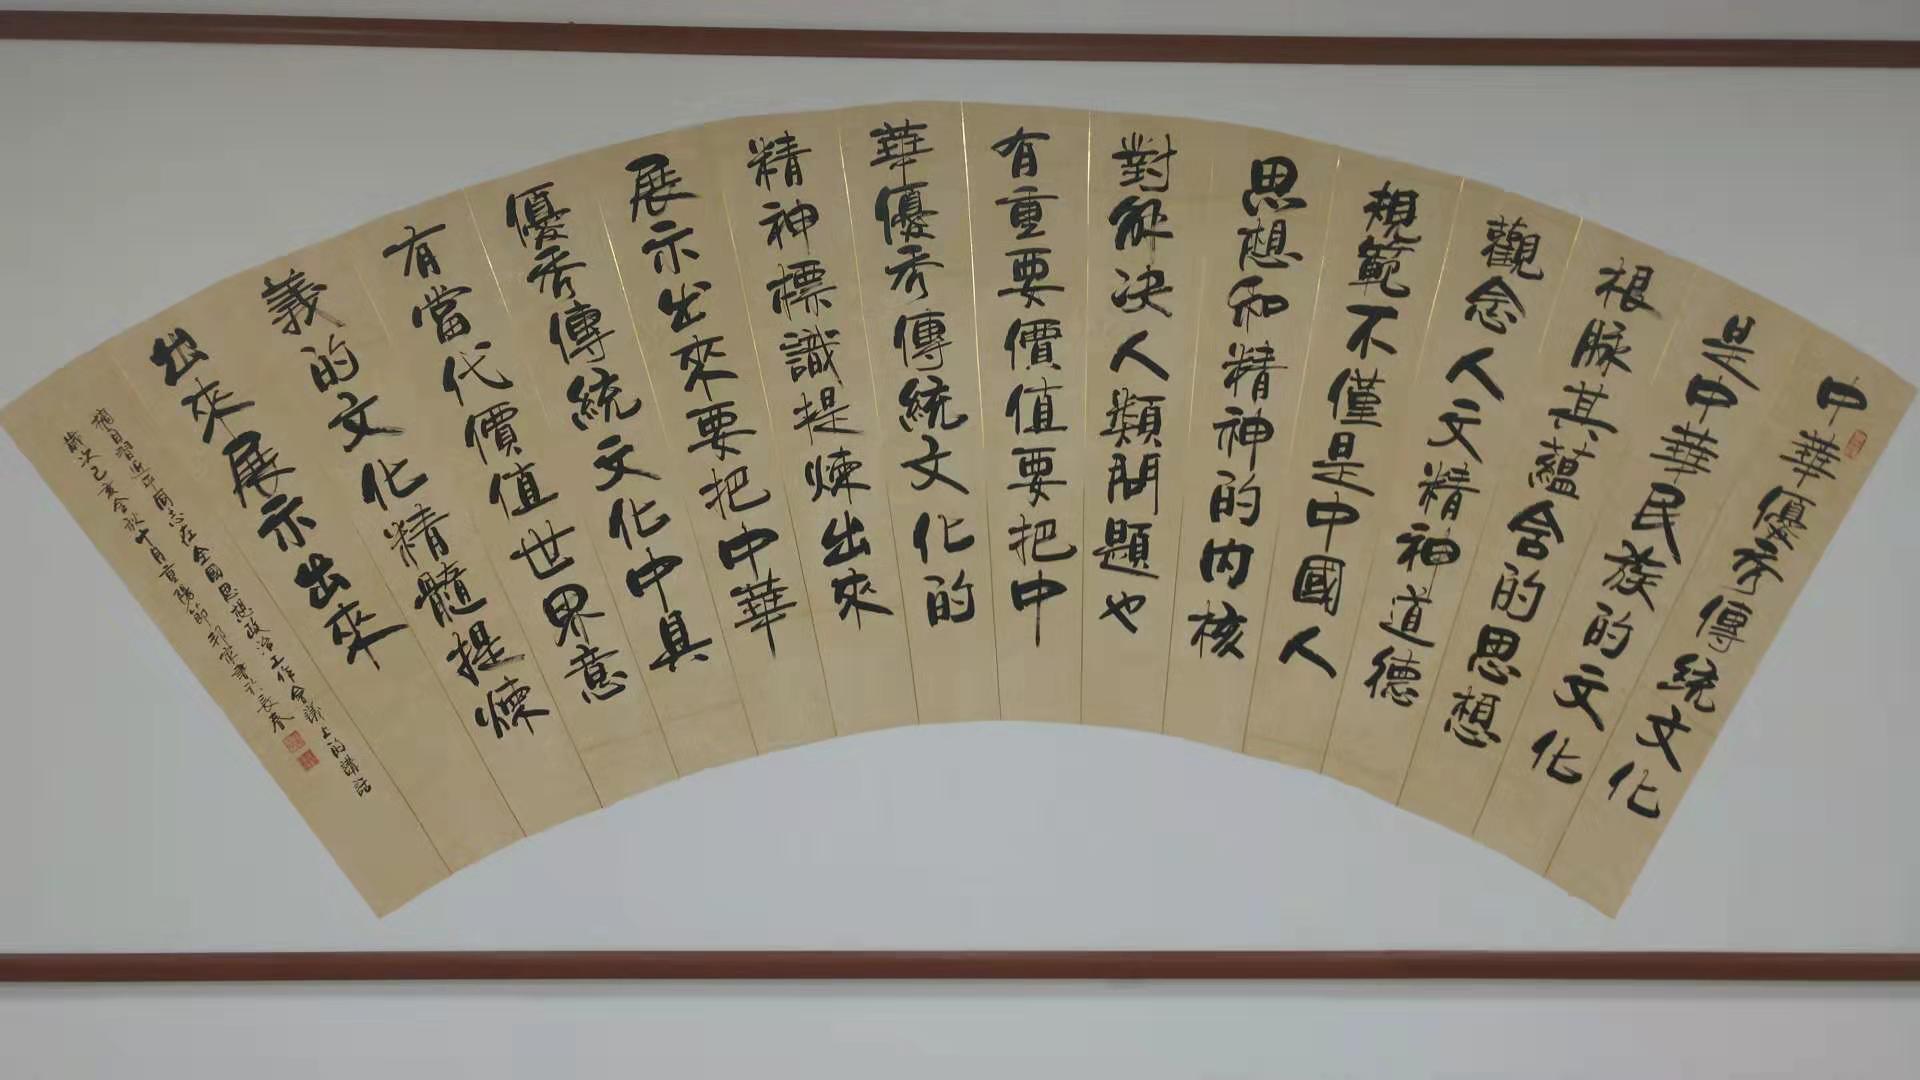 中華優秀傳統文化
是中華民族的文化
根脉其蘊含的思想
觀念人文精神道德
規範不僅是中國人
思想和精神的内核
對解决人類問題也
有重要價值要把中
華優秀傳統文化的
精神標識提煉出來
展示出來要把中華
優秀傳統文化中具
有當代價值世界意
義的文化精髓提煉
出來展示出來
摘自習近平同志在全國思想政治工作會議上的講話
歲次己亥金秋十月重陽節書於長春